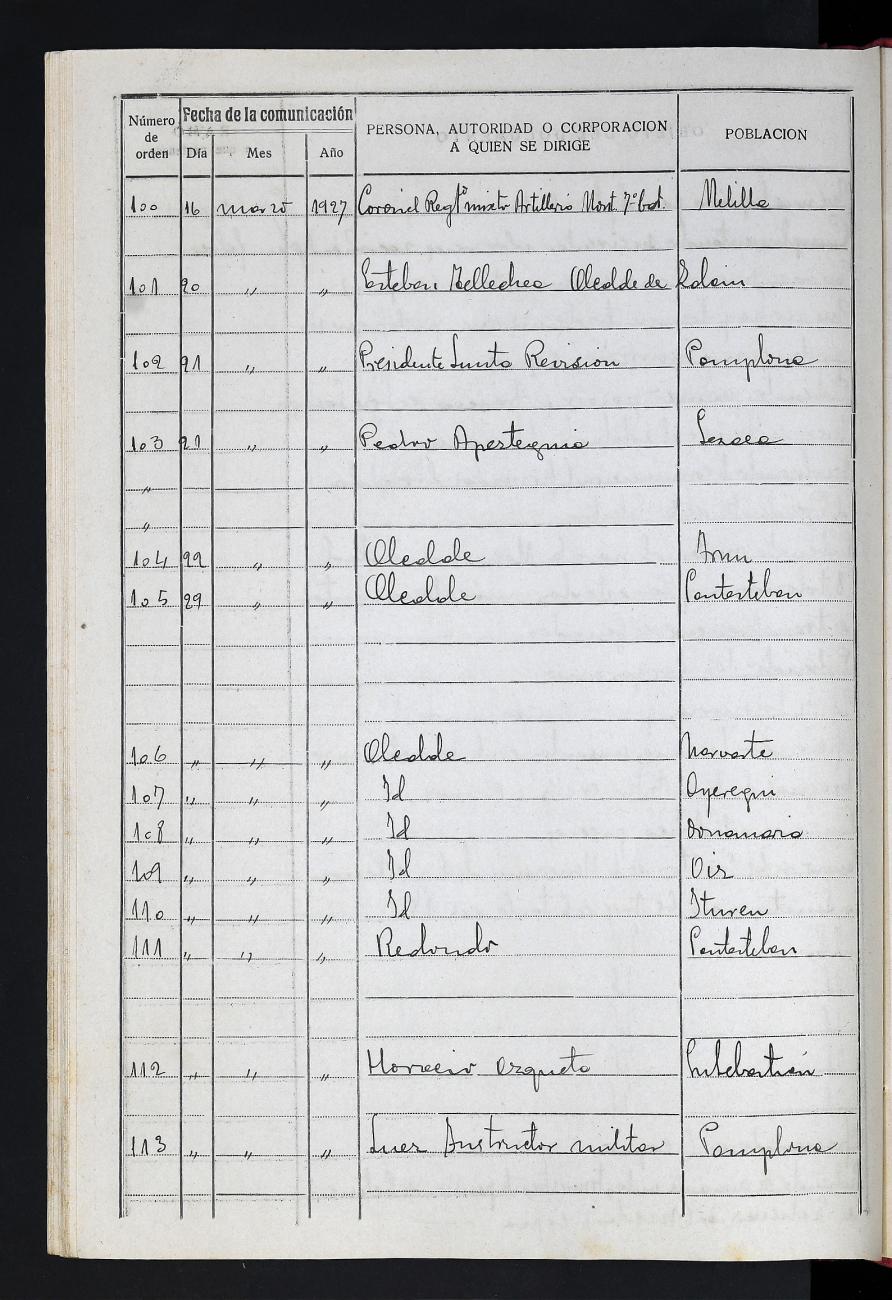 Número de orden Fecha de la comunicación PERSONA, AUTORIDAD O CORPORACION A QUIEN SE DIRIGE POBLACION
Día Mes Año
100 16 marzo 1927 Coronel Regtº mixto Artilleria Mont. 7ª bat. Melilla
101 20 " " Esteban Tellechea Alcalde de Labain
102 21 " " Presidente Junta Revision Pamplona
103 21 " " Pedro Apesteguia Lesaca
"
"
104 22 " " Alcalde
105 29 " " Alcalde Santesteban
106 " " " Alcalde Narvarte
107 " " " Id Oyeregui
108 " " " Id Donamaria
109 " " " Id Oiz
110 " " " Id Ituren
111 " " " Redondo Santesteban
112 " " " Horacio Azqueta Sn Sebastián
113 " " " Juez Instructor militar Pamplona